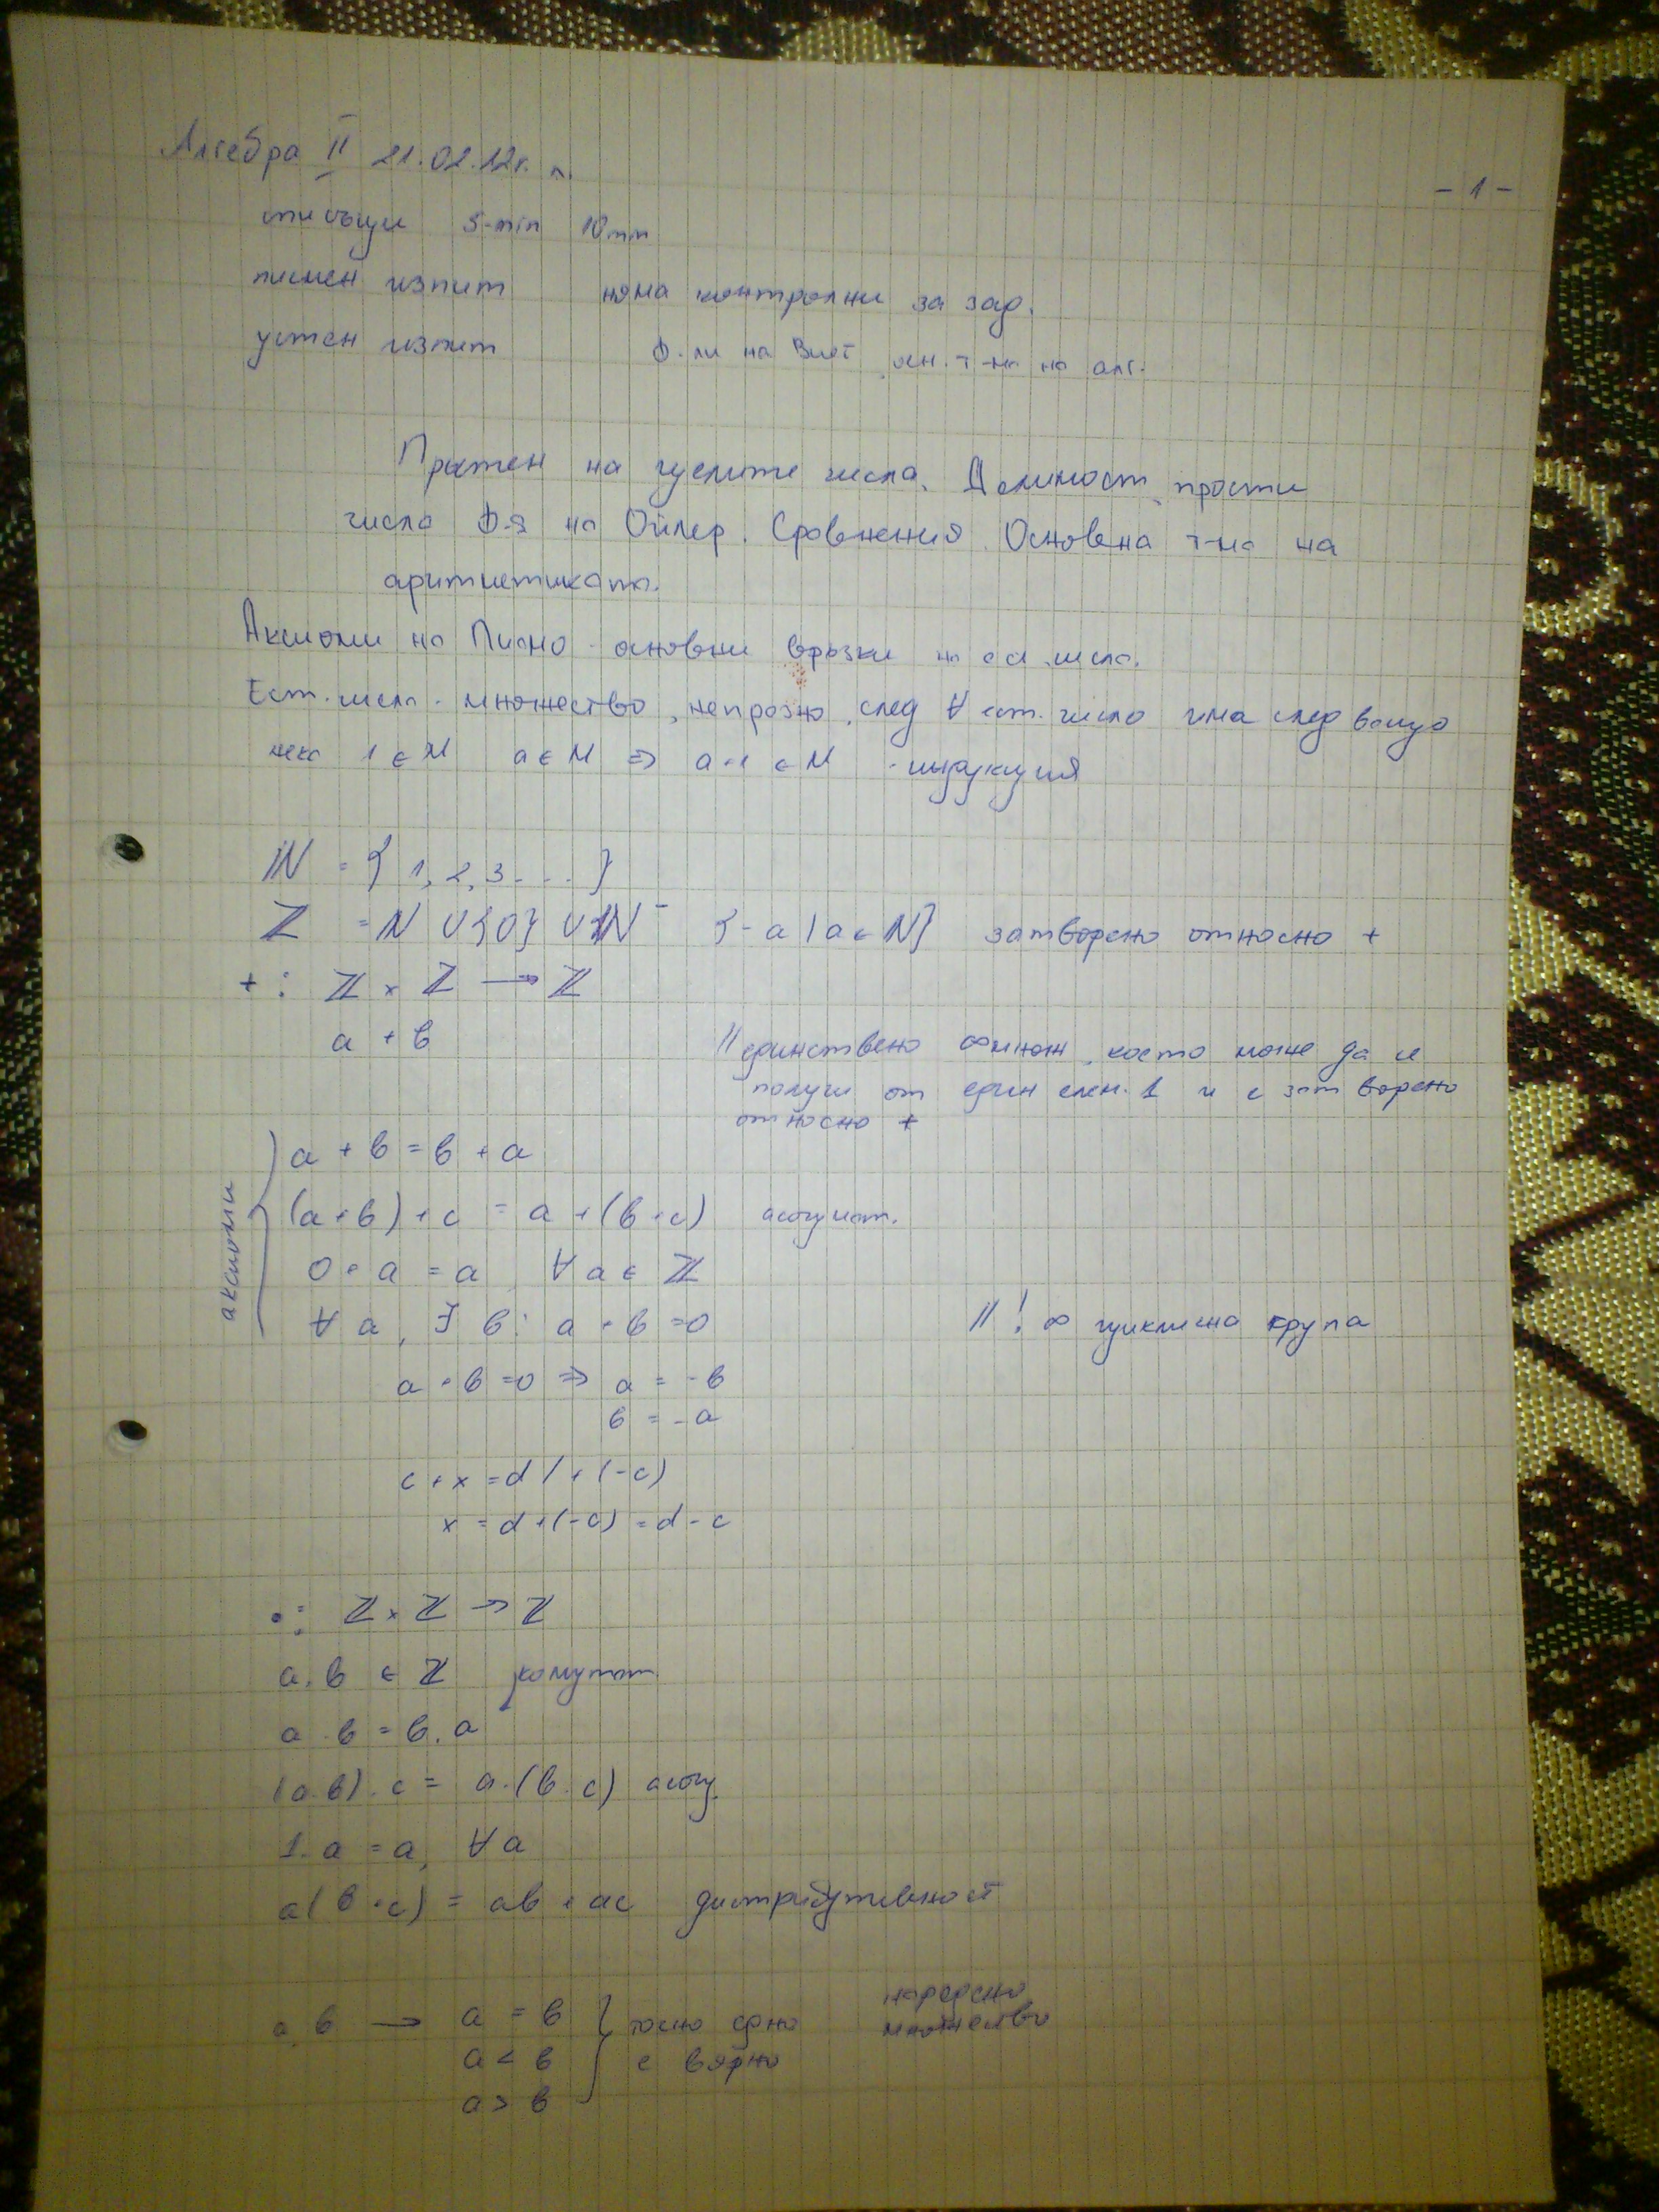 Алгебра II 21.02.12г. л.
- 1 -
5-min 10min
писмен изпит няма контролни за зад.
устен изпит ф.ли на Виет, осн. т-ма на алг.
Пръстен на целите числа. Делимост, прости
числа Ф-я на Ойлер. Сравнения. Основна т-ма на
аритметиката.
Аксиоми на Пиано - основни връзки на ест. числа.
Ест. числа - множество, непразно, след ∀ ест. число има следващо
нека 1 ∈ N a ∈ N ⇒ a+1 ∈ N - индукция
ℕ = { 1, 2, 3 . . . }
ℤ = ℕ ∪ {0} ∪ ℕ⁻ {-a | a ∈ ℕ} затворено относно +
+ : ℤ × ℤ → ℤ
a + b
// единствено ∞ множ., което може да се
получи от един елем. 1 и е затворено
относно +
аксиоми
a + b = b + a
(a+b) + c = a + (b+c) асоциат.
0 + a = a, ∀ a ∈ ℤ
∀ a, ∃ b : a + b = 0 // ! ∞ циклична група
a + b = 0 ⇒ a = -b
b = -a
c + x = d / + (-c)
x = d + (-c) = d - c
• : ℤ × ℤ → ℤ
a.b ∈ ℤ комутат.
a.b = b.a
(a.b).c = a.(b.c) асоц.
1.a = a, ∀ a
a(b+c) = ab + ac дистрибутивност
a, b → a = b } точно едно наредено
a < b } е вярно множество
a > b